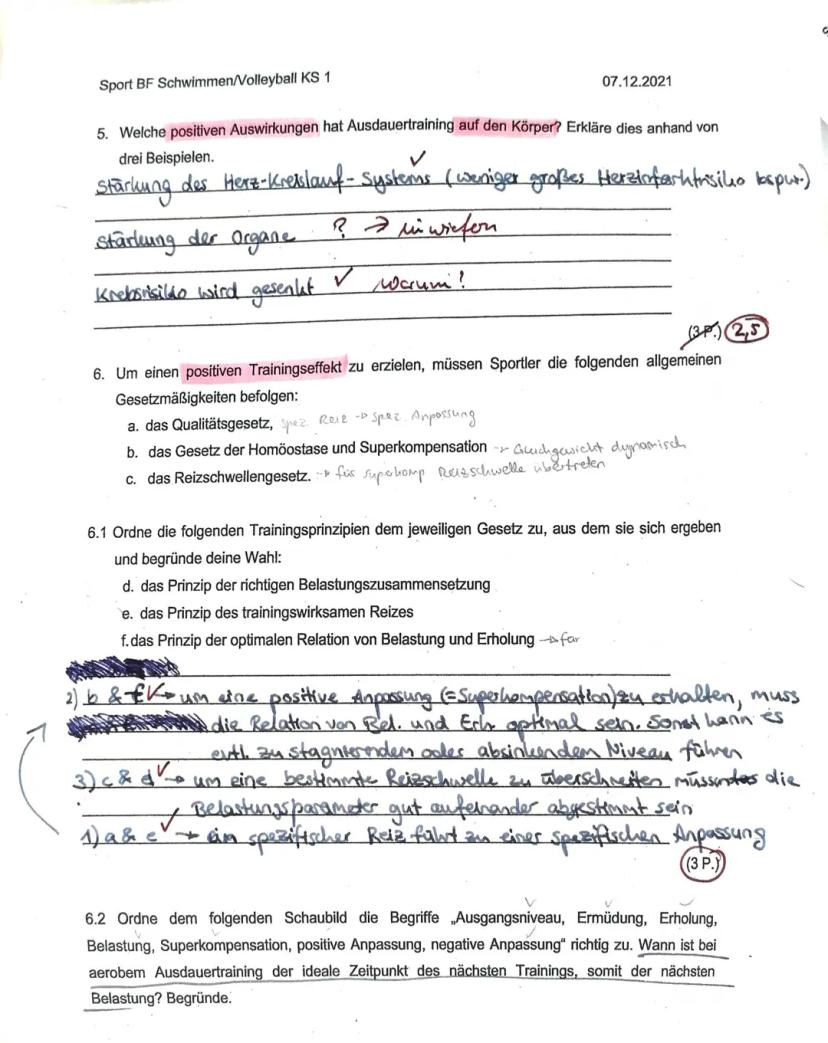 Sport BF Schwimmen/Volleyball KS 1 07.12.2021
5. Welche positiven Auswirkungen hat Ausdauertraining auf den Körper? Erkläre dies anhand von
drei Beispielen. ✓
Stärkung des Herz-Kreislauf-Systems (weniger großes Herzinfarktrisiko bspw.)
Stärkung der Organe ? → inwiefern
Krebsrisiko wird gesenkt ✓ warum!
(3 P.) 2,5
6. Um einen positiven Trainingseffekt zu erzielen, müssen Sportler die folgenden allgemeinen
Gesetzmäßigkeiten befolgen:
a. das Qualitätsgesetz, spez. Reiz → spez. Anpassung
b. das Gesetz der Homöostase und Superkompensation → Gleichgewicht dynamisch
c. das Reizschwellengesetz. → für Supekomp Reizschwelle übertreten
6.1 Ordne die folgenden Trainingsprinzipien dem jeweiligen Gesetz zu, aus dem sie sich ergeben
und begründe deine Wahl:
d. das Prinzip der richtigen Belastungszusammensetzung
e. das Prinzip des trainingswirksamen Reizes
f. das Prinzip der optimalen Relation von Belastung und Erholung →
2) b & f ✓→ um eine positive Anpassung (=Superkompensation) zu erhalten, muss
die Relation von Bel. und Erh. optimal sein. Sonst kann es
evtl. zu stagnierendem oder absinkendem Niveau führen
3) c & d ✓→ um eine bestimmte Reizschwelle zu überschreiten müssen die
Belastungsparameter gut aufeinander abgestimmt sein
1) a & e ✓→ ein spezifischer Reiz führt zu einer spezifischen Anpassung
(3 P.)
6.2 Ordne dem folgenden Schaubild die Begriffe „Ausgangsniveau, Ermüdung, Erholung,
Belastung, Superkompensation, positive Anpassung, negative Anpassung" richtig zu. Wann ist bei
aerobem Ausdauertraining der ideale Zeitpunkt des nächsten Trainings, somit der nächsten
Belastung? Begründe.